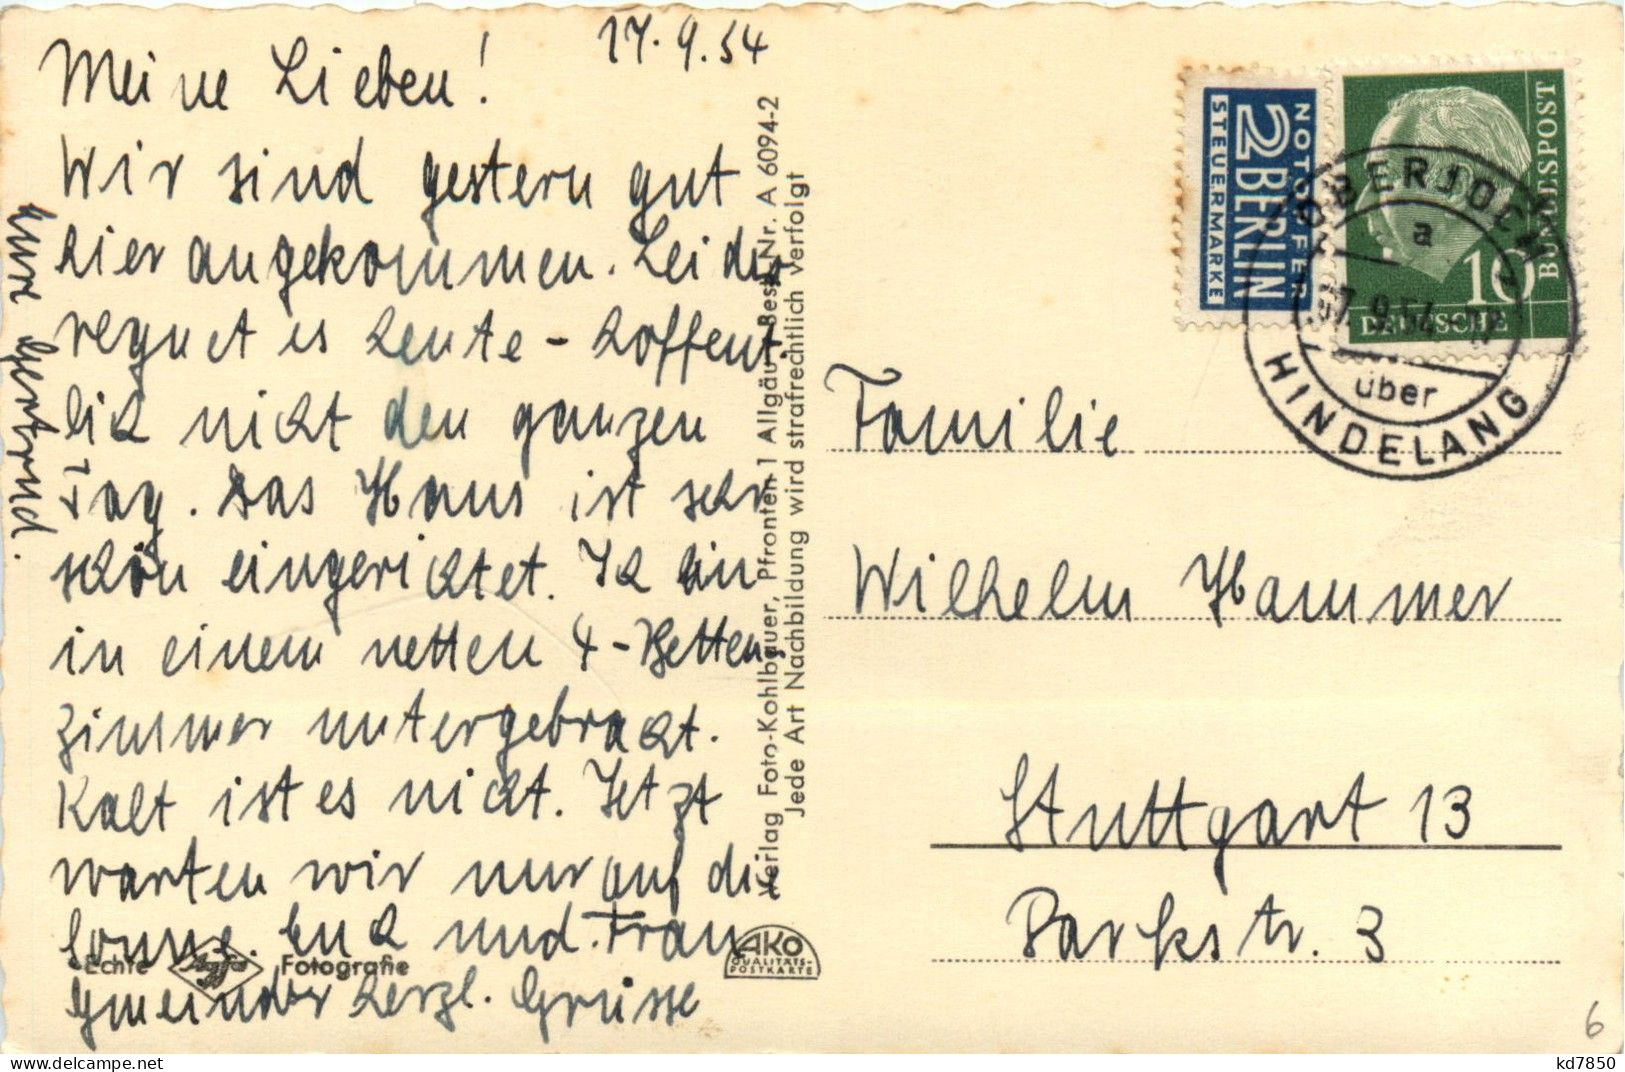 17.9.54
Meine Lieben!
Wir sind gestern gut
hier angekommen. Leider
regnet es heute - hoffent-
lich nicht den ganzen
Tag. Das Haus ist sehr
schön eingerichtet. Ich bin
in einem netten 4-Betten-
zimmer untergebracht.
Kalt ist es nicht. Jetzt
warten wir nur auf die
Sonne. Euch und Frau
Gmeinder herzl. Grüsse
Eure Gertrud.
Verlag Foto-Kohlbauer, Pfronten 1 Allgäu Best. Nr. A 6094-2
Jede Art Nachbildung wird strafrechtlich verfolgt
Echte Agfa Fotografie
AKO
QUALITÄTS-
POSTKARTE
NOTOPFER
2 BERLIN
STEUERMARKE
DEUTSCHE
BUNDESPOST
10
OBERJOCH
a
über
HINDELANG
Familie
Wilhelm Hammer
Stuttgart 13
Parkstr. 3
6
kd7850